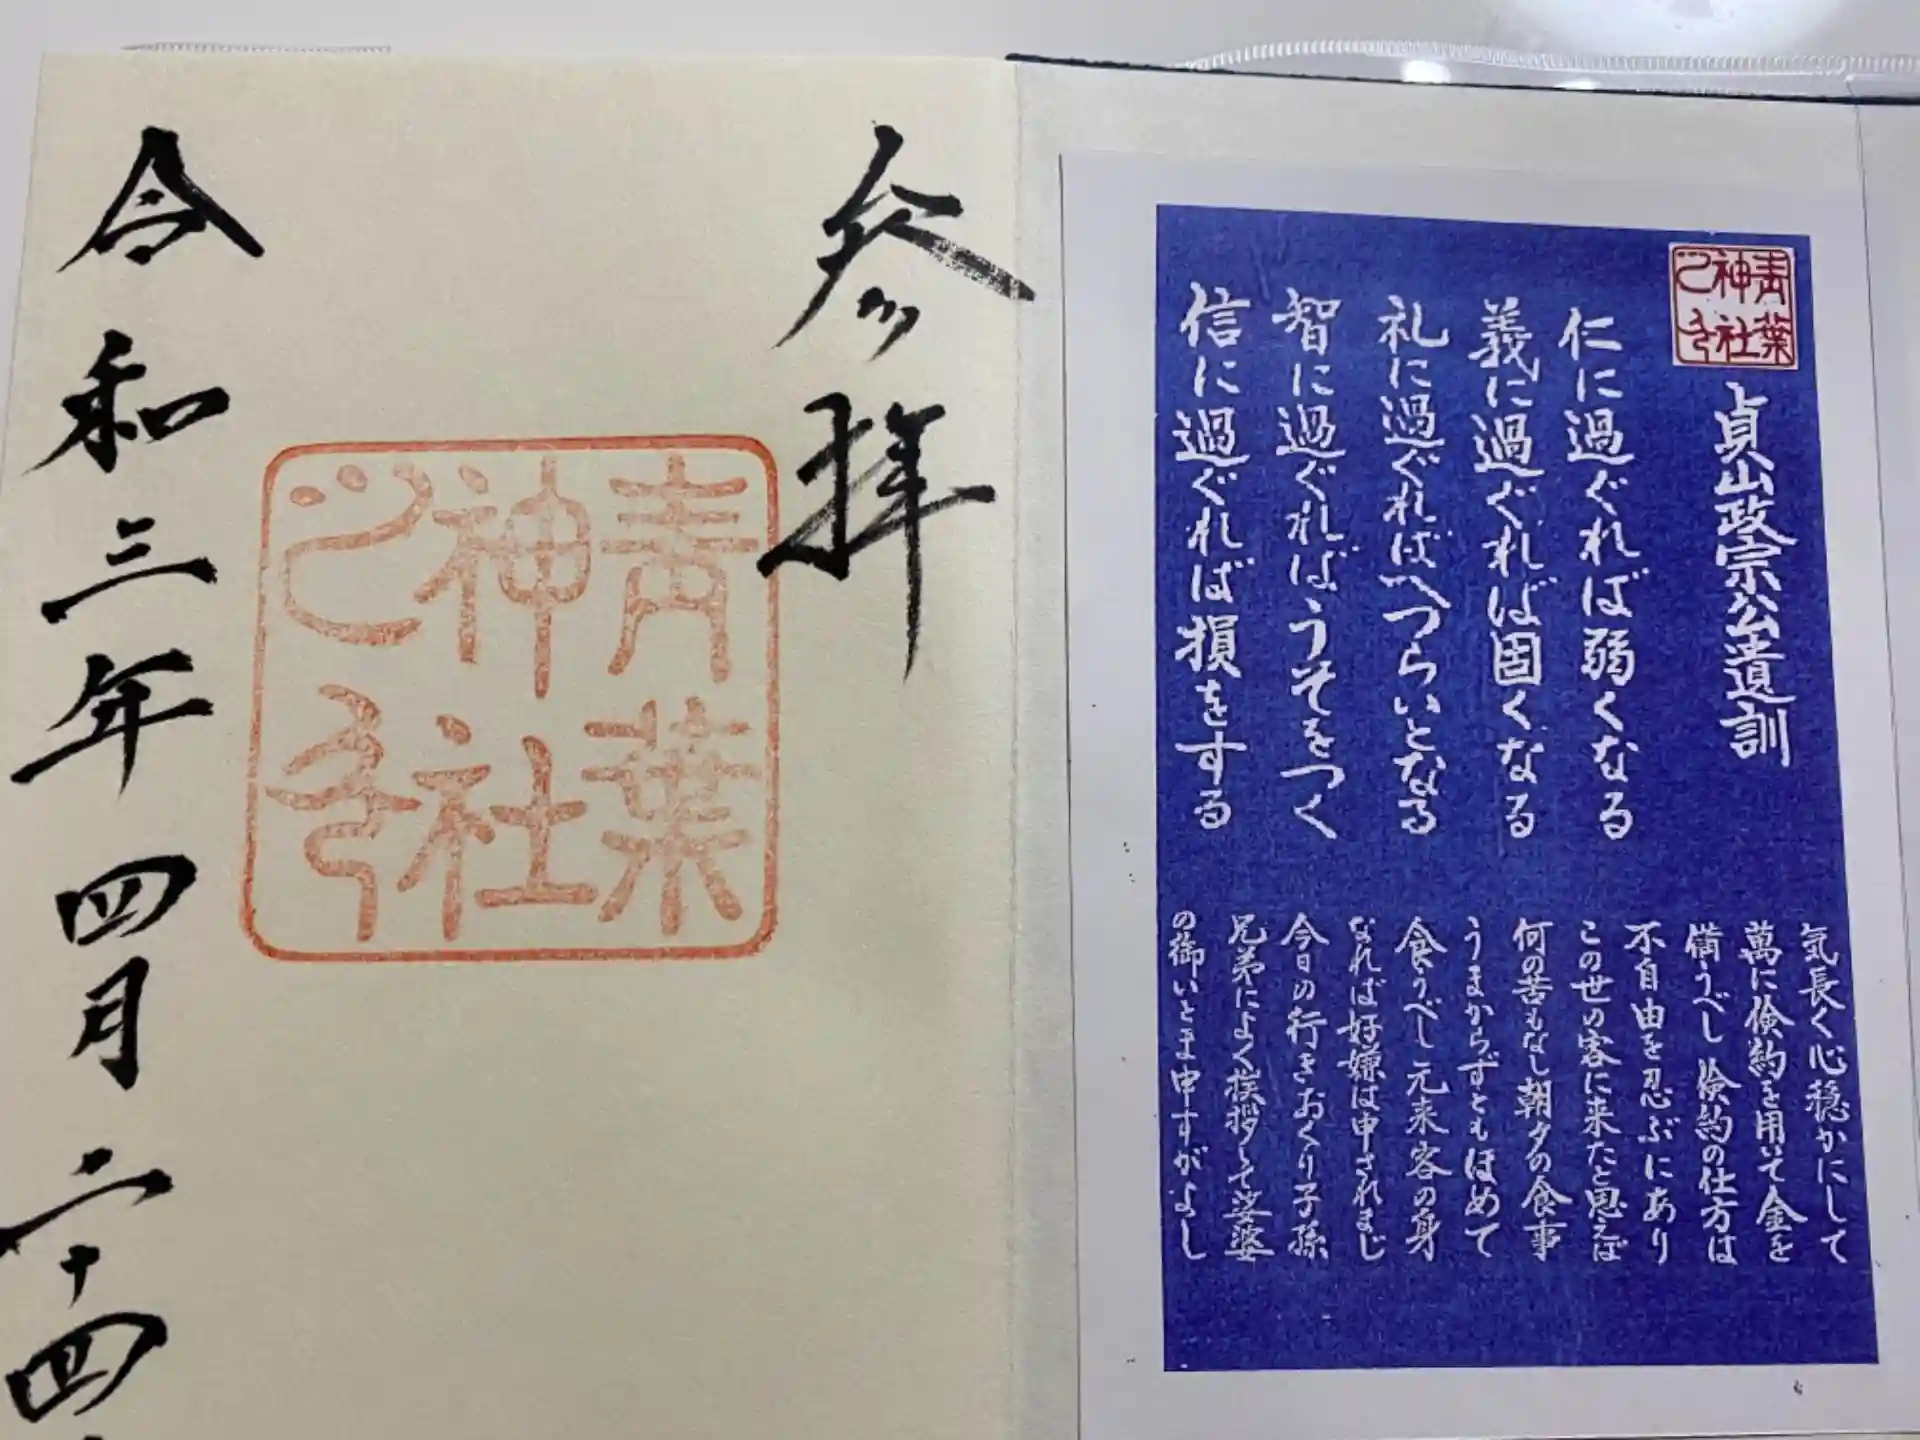 参拝
青葉
神社
之印
令和三年四月二十四
青葉
神社
之印
貞山政宗公遺訓
仁に過ぐれば弱くなる
義に過ぐれば固くなる
礼に過ぐればへつらいとなる
智に過ぐればうそをつく
信に過ぐれば損をする
気長く心穏かにして
萬に倹約を用いて金を
備うべし 倹約の仕方は
不自由を忍ぶにあり
この世の客に来たと思えば
何の苦もなし朝夕の食事
うまからずともほめて
食うべし元来客の身
なれば好嫌は申されまじ
今日の行きおくり子孫
兄弟によく挨拶して娑婆
の御いとま申すがよし